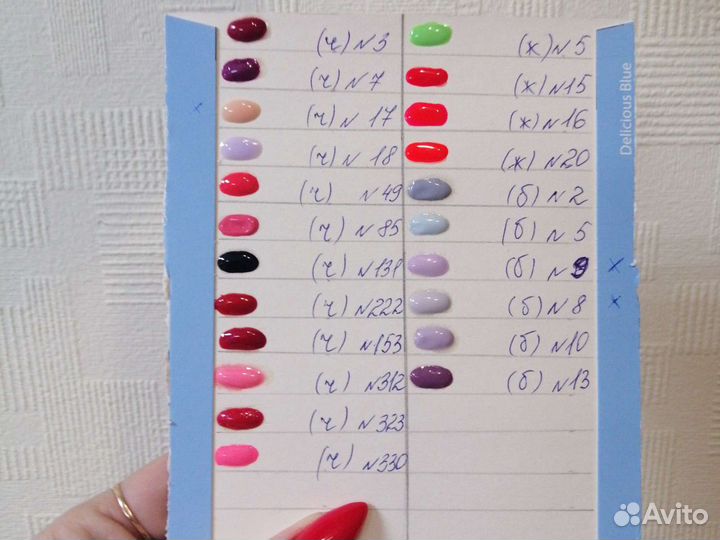 (ч) №3
(ч) №7
(ч) № 17
(ч) № 18
(ч) №49
(ч) №85
(ч) №131
(ч) №222
(ч) №153
(ч) №312
(ч) №323
(ч) №330
(ж) №5
(ж) №15
(ж) №16
(ж) №20
(б) №2
(б) № 5
(б) №9
(б) №8
(б) №10
(б) №13
Delicious Blue
Avito